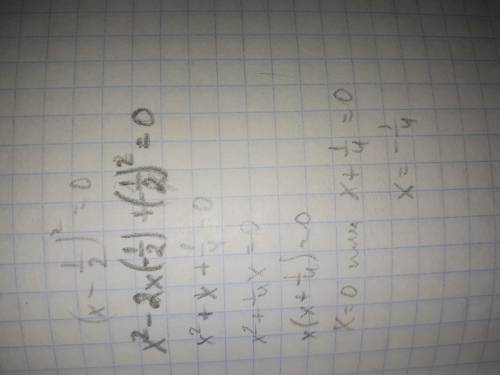 (x - 1/2)² = 0
x² - 2x(-1/2) + (-1/2)² = 0
x² + x + 1/4 = 0
x² + 1/4x = 0
x(x + 1/4) = 0
x = 0 или x + 1/4 = 0
x = -1/4